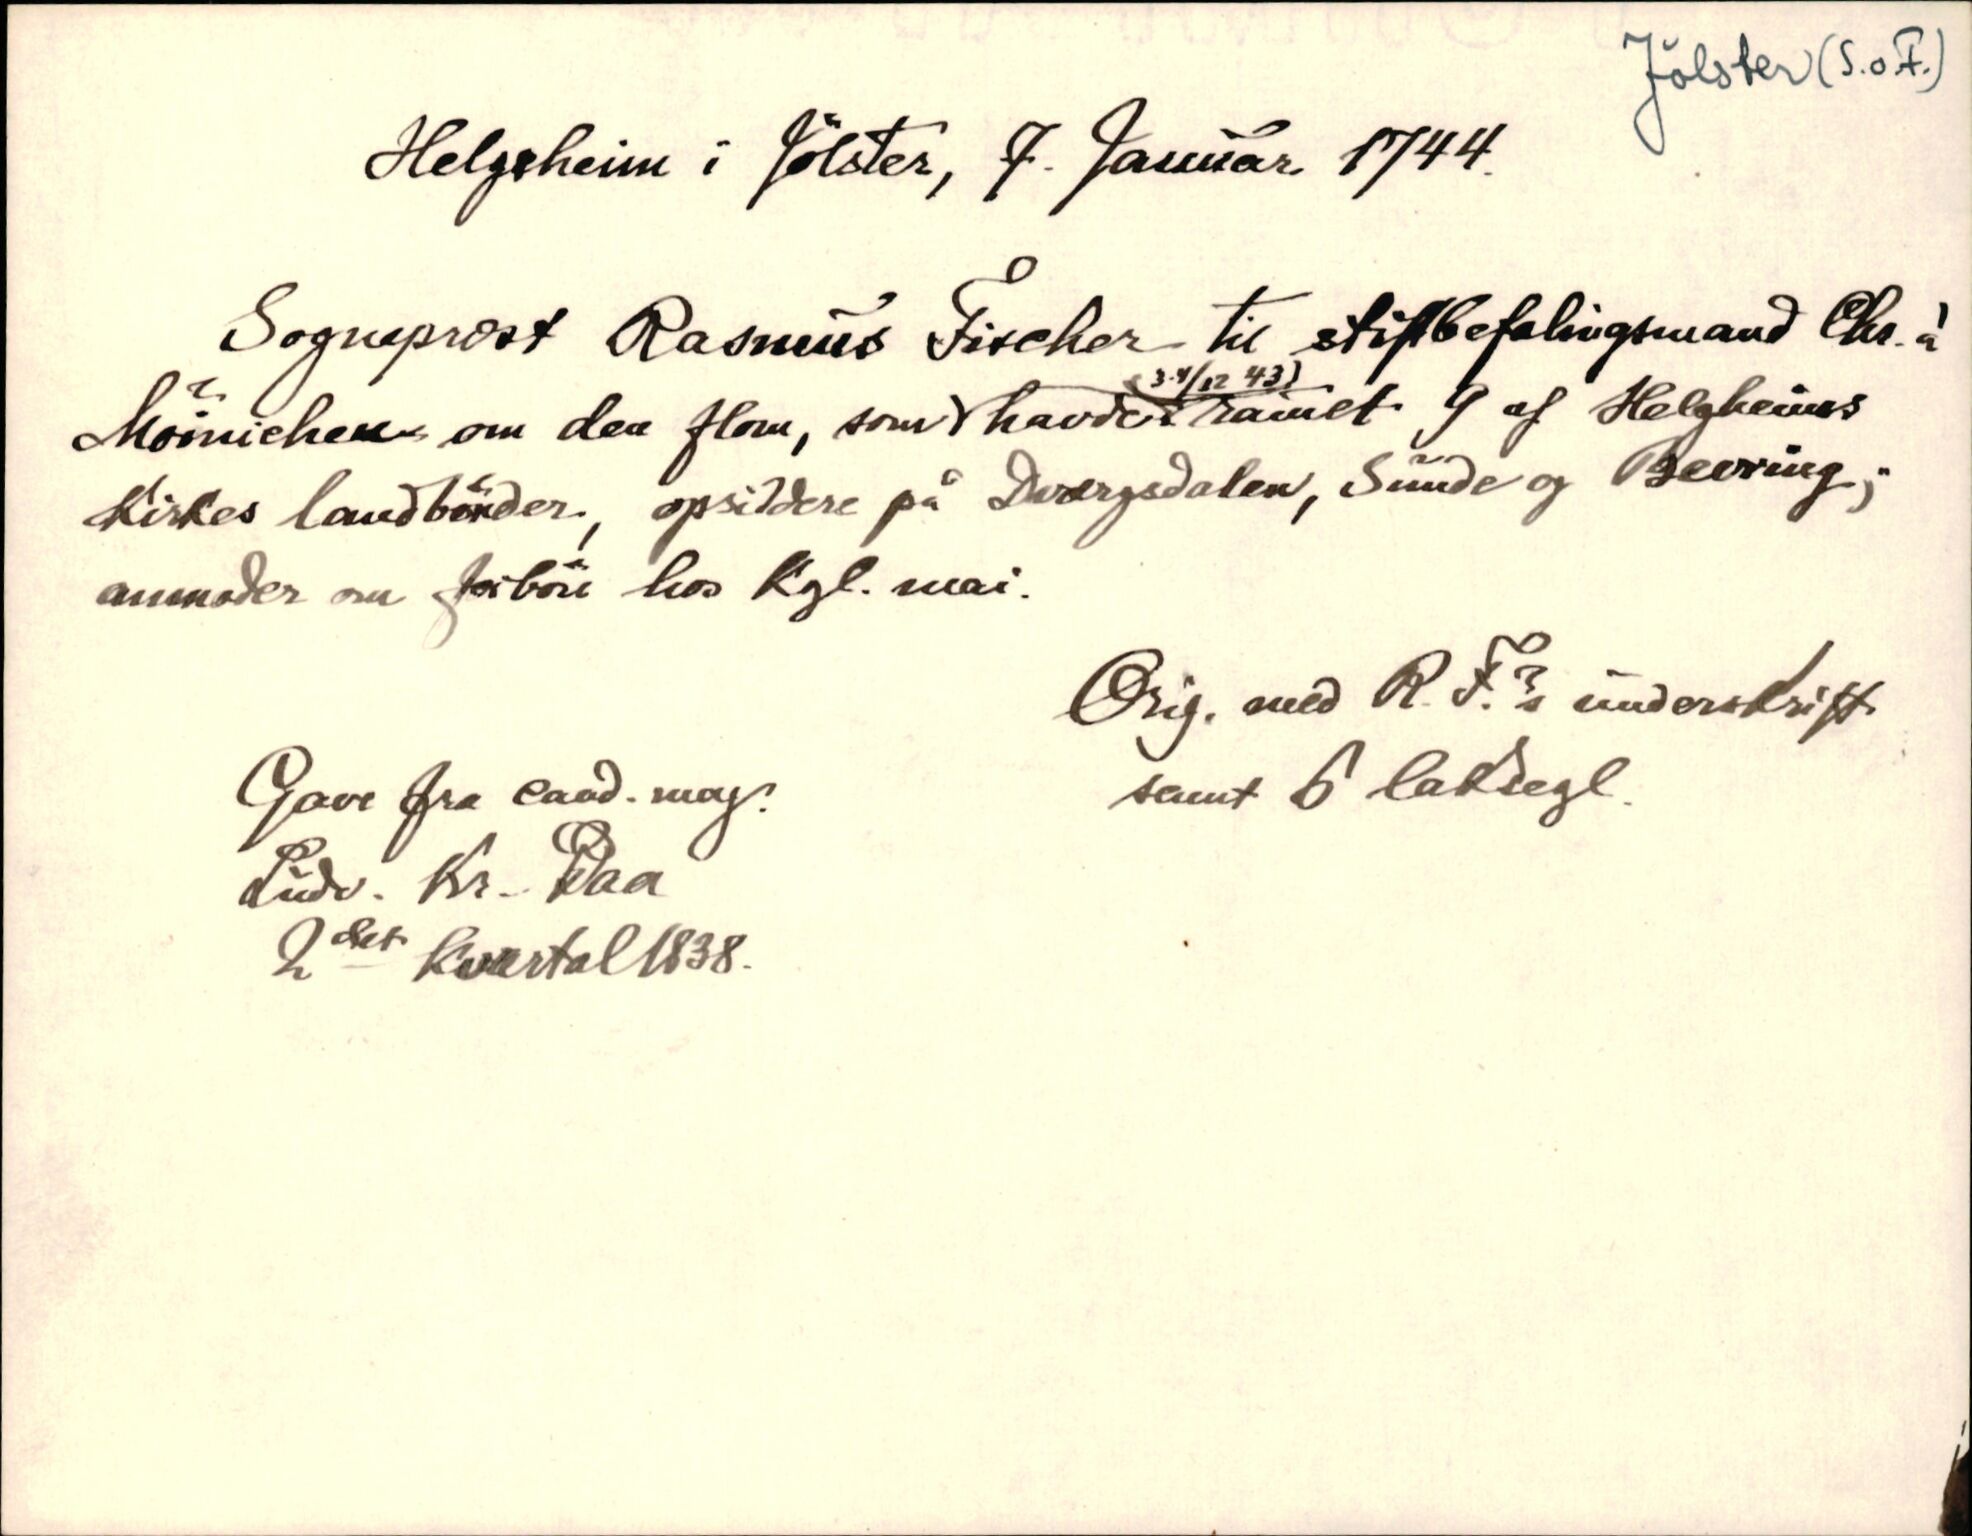 Jölster (S. o F.)
Helgheim i Jölster, 7. Januar 1744.
Sogneprest Rasmus Fischer til stiftbefalingsmand Chr. á
(3.-4/12 43)
Möinichen om den flom, som havde ramet 9 af Helgheims
Kirkes landbönder, opsiddere på Dvergsdalen, Sunde og Bevring;
anmoder om forbön hos Kgl. mai.
Orig. med R. F.'s underskrift
samt 6 laksegl.
Gave fra cand. mag.
Ludv. Kr. Daa
2det kvartal 1838.